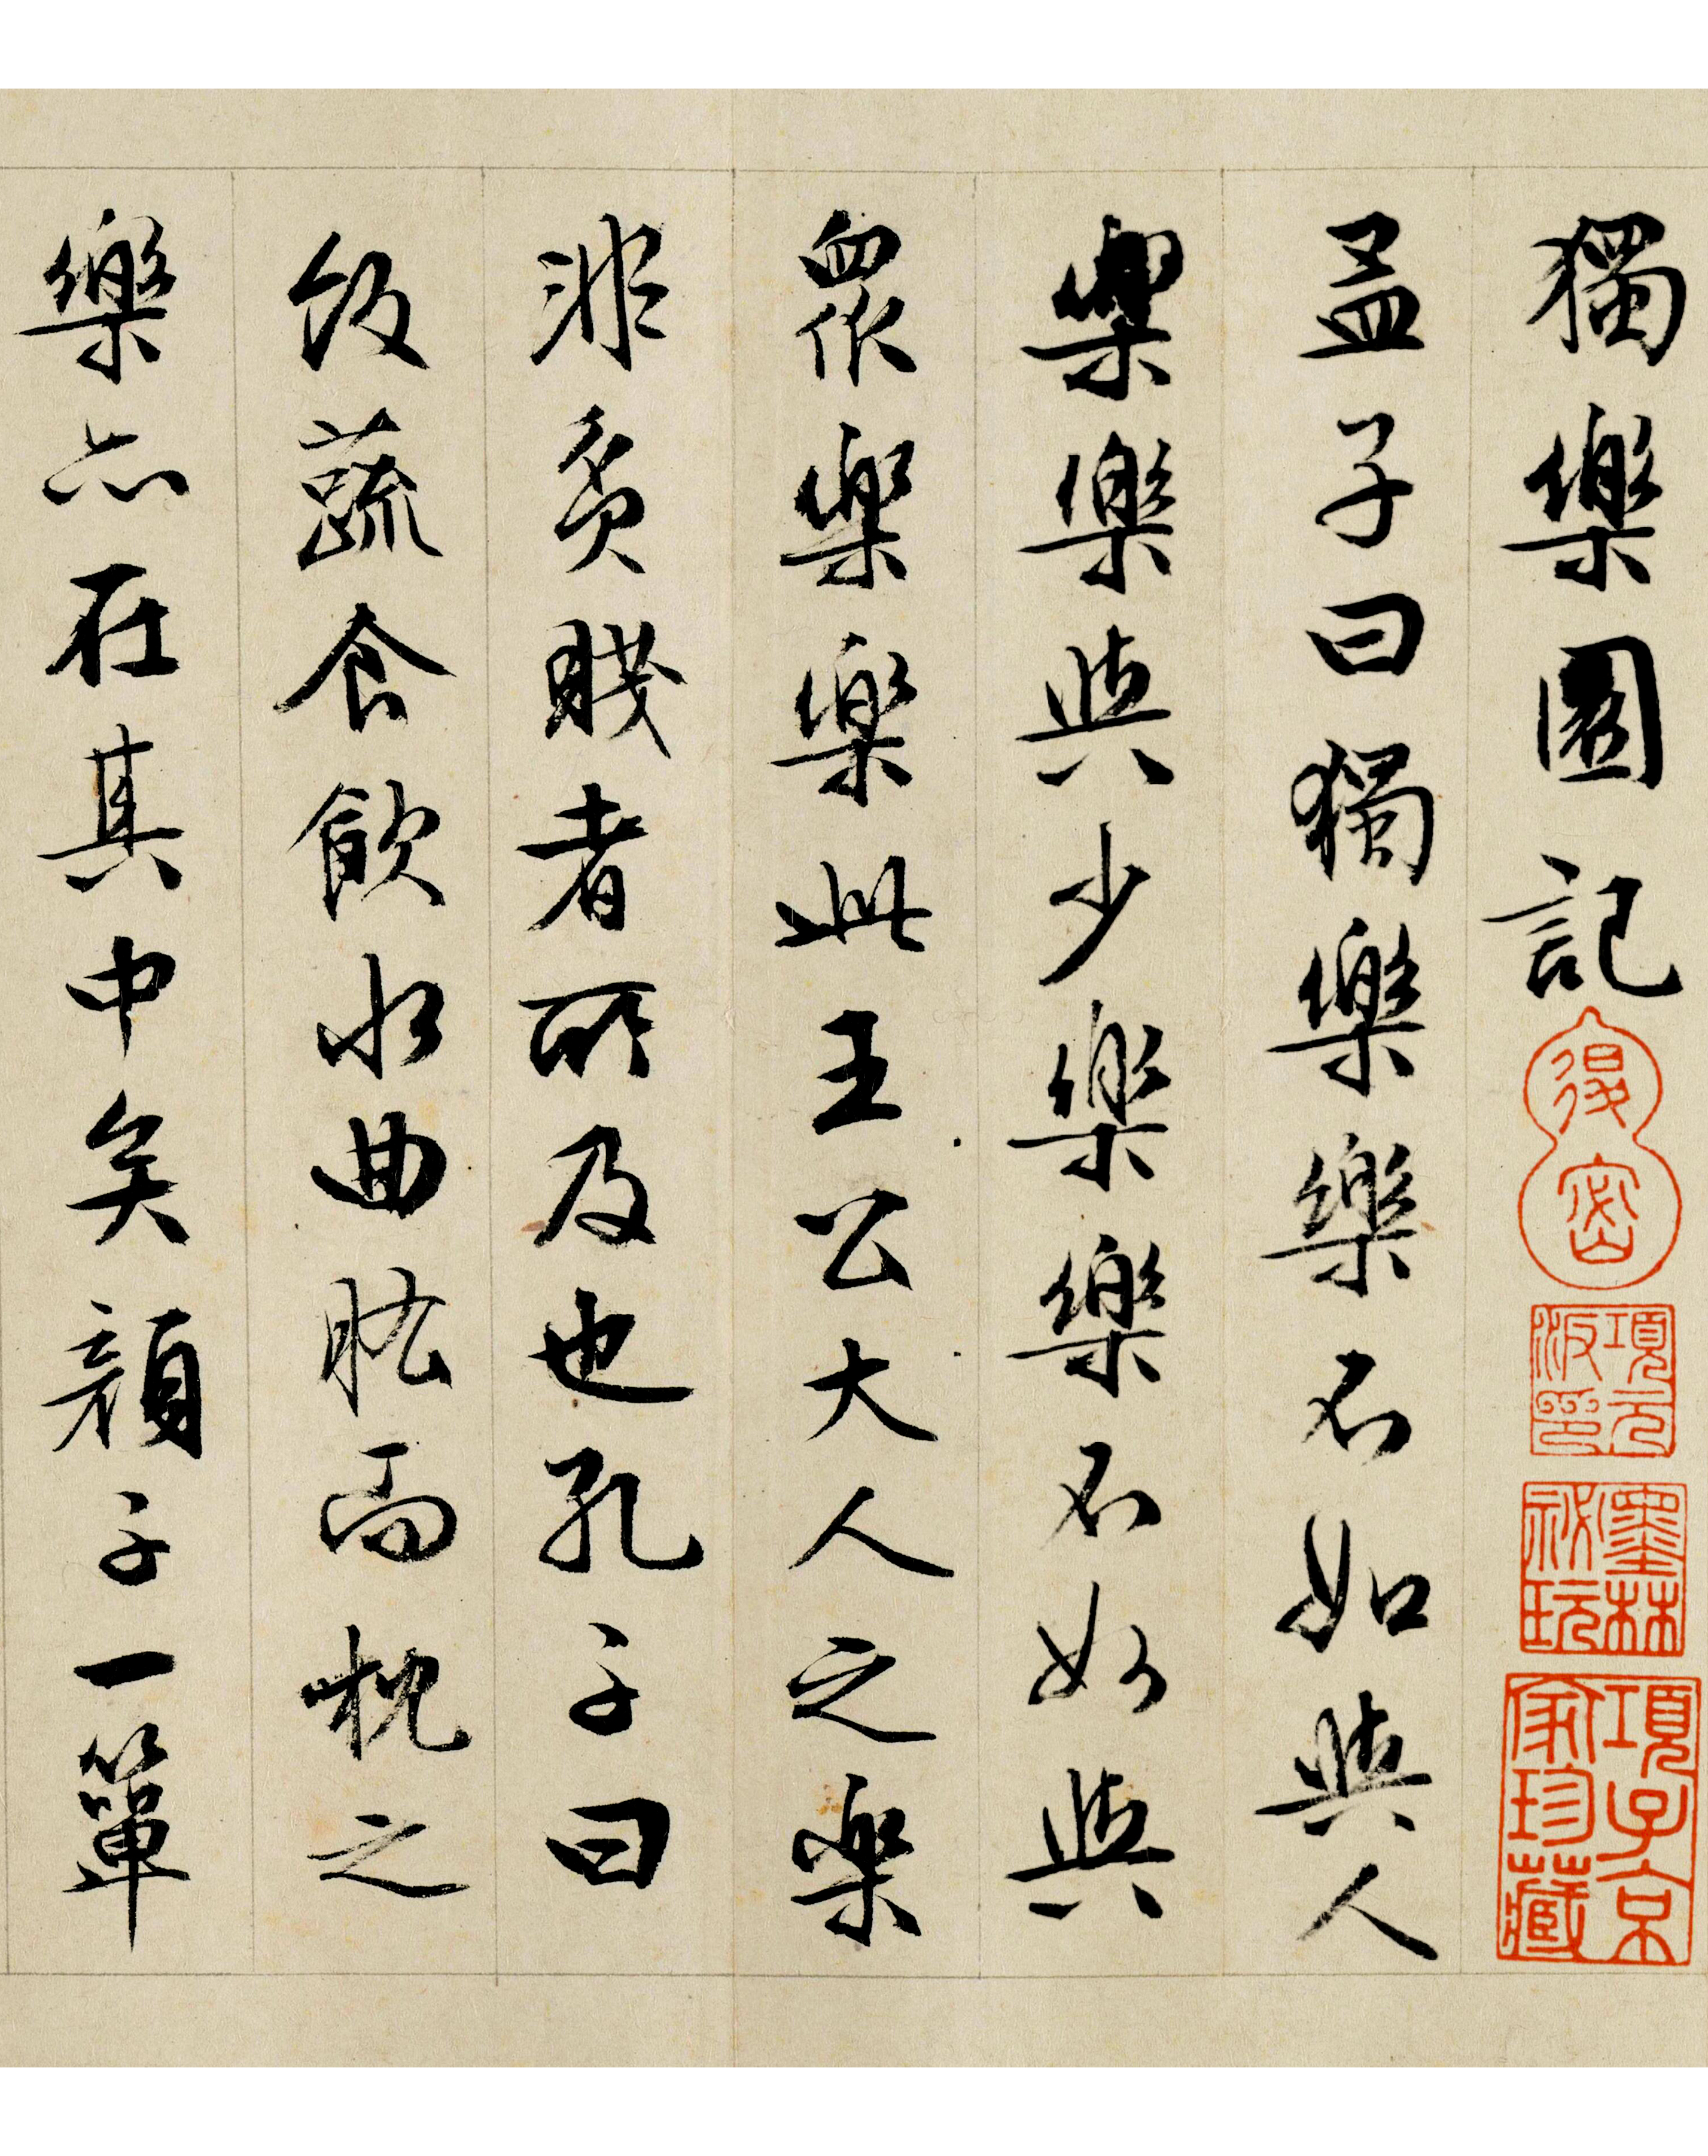 獨樂園記
孟子曰獨樂樂不如與人
樂樂與少樂樂不如與
眾樂樂此王公大人之樂
非貧賤者所及也孔子曰
飯蔬食飲水曲肱而枕之
樂亦在其中矣顏子一簞
項元汴印
墨林祕玩
項子京家珍藏